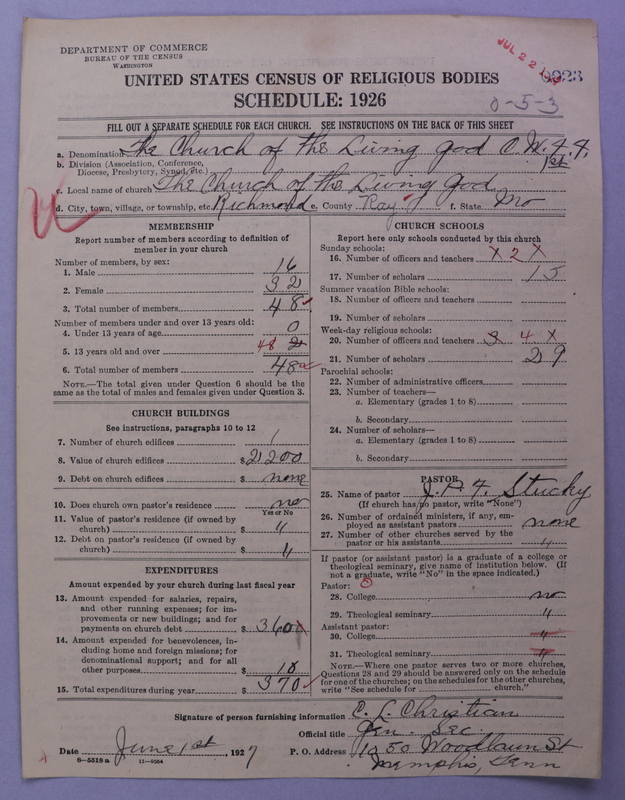 DEPARTMENT OF COMMERCE
BUREAU OF THE CENSUS
WASHINGTON
JUL 22
UNITED STATES CENSUS OF RELIGIOUS BODIES
SCHEDULE: 1926
0-5-3
FILL OUT A SEPARATE SCHEDULE FOR EACH CHURCH. SEE INSTRUCTIONS ON THE BACK OF THIS SHEET
a. Denomination The Church of the Living God C. W. F. F.
b. Division (Association, Conference, Diocese, Presbytery, Synod, etc.) 1st
c. Local name of church The Church of the Living God
d. City, town, village, or township, etc. Richmond e. County Ray f. State Mo
MEMBERSHIP
Report number of members according to definition of
member in your church
Number of members, by sex:
1. Male 16
2. Female 32
3. Total number of members 48
Number of members under and over 13 years old:
4. Under 13 years of age 0
5. 13 years old and over 48
6. Total number of members 48
NOTE.—The total given under Question 6 should be the
same as the total of males and females given under Question 3.
CHURCH BUILDINGS
See instructions, paragraphs 10 to 12
7. Number of church edifices 1
8. Value of church edifices $ 2200
9. Debt on church edifices $ none
10. Does church own pastor's residence no
Yes or No
11. Value of pastor's residence (if owned by
church) $ "
12. Debt on pastor's residence (if owned by
church) $ "
EXPENDITURES
Amount expended by your church during last fiscal year
13. Amount expended for salaries, repairs,
and other running expenses; for im-
provements or new buildings; and for
payments on church debt $ 360
14. Amount expended for benevolences, in-
cluding home and foreign missions; for
denominational support; and for all
other purposes $ 10
15. Total expenditures during year $ 370
CHURCH SCHOOLS
Report here only schools conducted by this church
Sunday schools:
16. Number of officers and teachers X 2 X
17. Number of scholars 15
Summer vacation Bible schools:
18. Number of officers and teachers
19. Number of scholars
Week-day religious schools:
20. Number of officers and teachers 3 4 X
21. Number of scholars 29
Parochial schools:
22. Number of administrative officers
23. Number of teachers—
a. Elementary (grades 1 to 8)
b. Secondary
24. Number of scholars—
a. Elementary (grades 1 to 8)
b. Secondary
PASTOR
25. Name of pastor Stucky
(If church has no pastor, write "None")
26. Number of ordained ministers, if any, em-
ployed as assistant pastors none
27. Number of other churches served by the
pastor or his assistants "
If pastor (or assistant pastor) is a graduate of a college or
theological seminary, give name of institution below. (If
not a graduate, write "No" in the space indicated.)
Pastor:
28. College no
29. Theological seminary "
Assistant pastor:
30. College "
31. Theological seminary "
NOTE.—Where one pastor serves two or more churches,
Questions 28 and 29 should be answered only on the schedule
for one of the churches; on the schedules for the other churches,
write "See schedule for church."
Signature of person furnishing information C. L. Christian
Official title Gen. Sec
Date June 1st, 1927 P. O. Address 1050 Woodlawn St
Memphis, Tenn
8-5518 a 11-9354